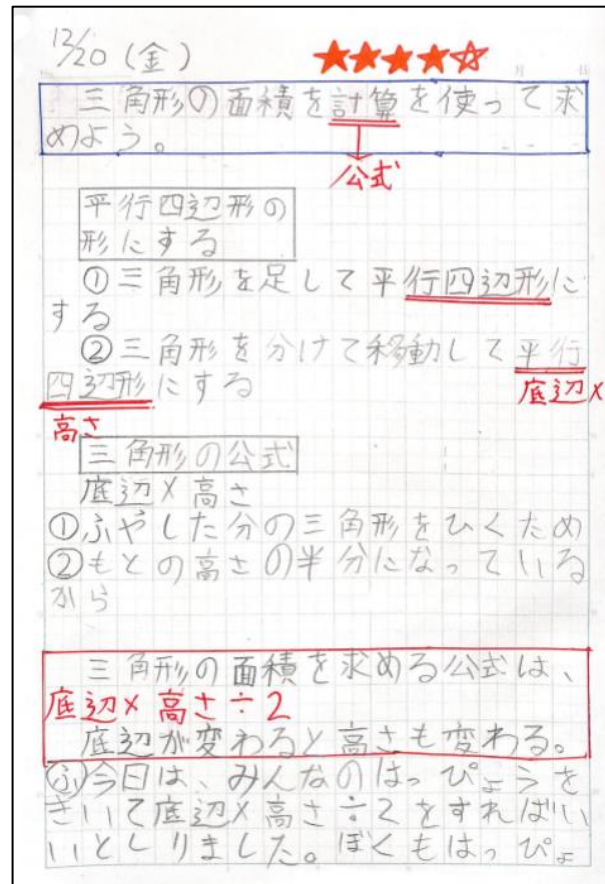 12/20(金) ★★★★☆
三角形の面積を計算を使って求
めよう。
公式
平行四辺形の
形にする
①三角形を足して平行四辺形に
する
②三角形を分けて移動して平行
四辺形にする
底辺×
高さ
三角形の公式
底辺×高さ
①ふやした分の三角形をひくため
②もとの高さの半分になっている
から
三角形の面積を求める公式は、
底辺×高さ÷2
底辺が変わると高さも変わる。
㋫今日は、みんなのはっぴょうを
きいて底辺×高さ÷2をすればい
いとしりました。ぼくもはっぴょ